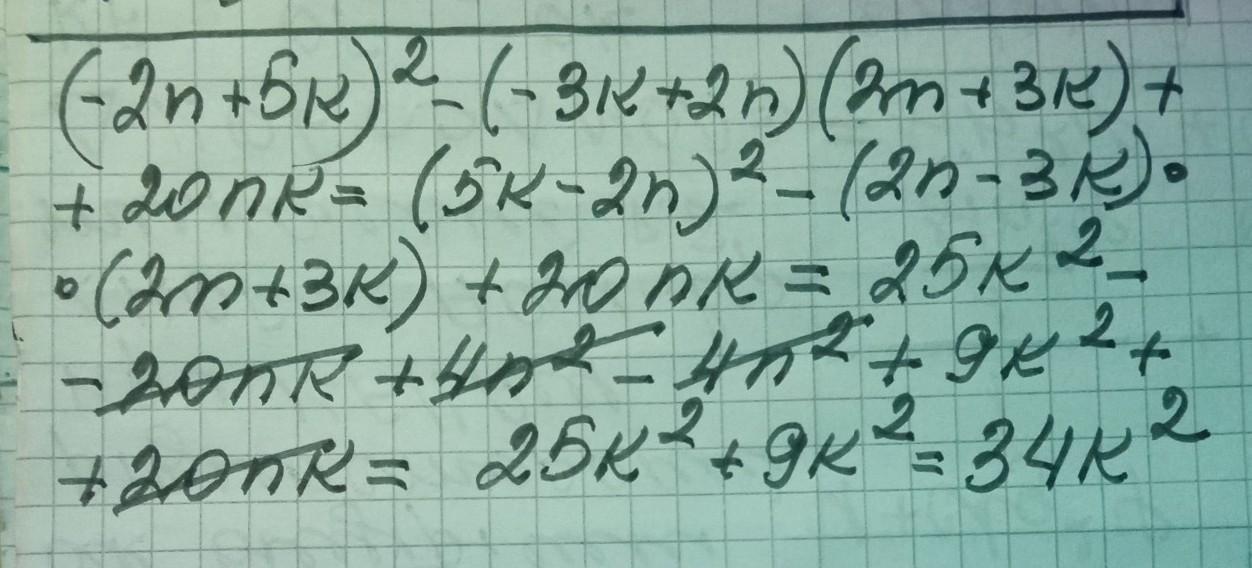 (-2n+5k)² - (-3k+2n)(2n+3k) +
+ 20nk = (5k-2n)² - (2n-3k)•
•(2n+3k) + 20nk = 25k² -
- 20nk + 4n² - 4n² + 9k² +
+ 20nk = 25k² + 9k² = 34k²